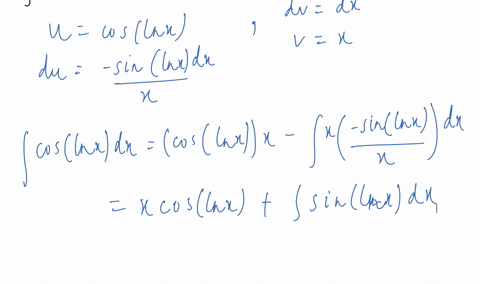 u = cos(lnx) , dv = dx
du = -sin(lnx)dx / x v = x
∫cos(lnx)dx = (cos(lnx))x - ∫x(-sin(lnx) / x)dx
= x cos(lnx) + ∫sin(lnx)dx